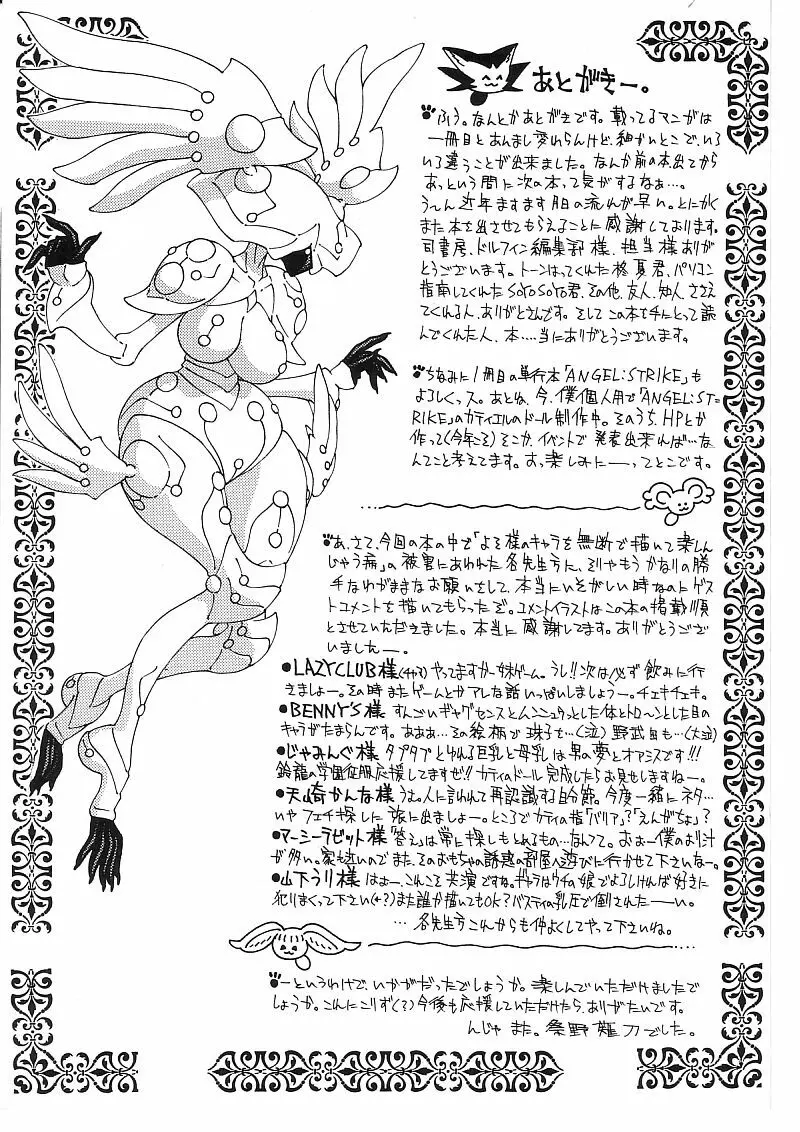 あとがきー。
ふう。なんとかあとがきです。載ってるマンガは
一冊目とあんまし変わらんけど、細かいとこで、いろ
いろ違うことが出来ました。なんか前の本出てから
あっという間に次の本って気がするなぁ…。
う〜ん近年ますます月日の流れが早い。とにかく
また本を出させてもらえることに感謝しております。
司書房、ドルフィン編集部様、担当様ありが
とうございます。トーンはってくれた柊夏君、パソコン
指南してくれたSoYoSoYo君、その他、友人、知人、ささえ
てくれる人、ありがとさんです。そしてこの本を手にとって読
んでくれた人、本…当にありがとうございます。
ちなみに1冊目の単行本「ANGEL:STRIKE」も
よろしくっス。あとね、今、僕個人用で「ANGEL:ST-
RIKE」のカティエルのドール制作中。そのうち、HPとか
作って(今年ころ)そこか、イベントで発表出来れば…な
んてこと考えてます。お楽しみにーってとこです。
あ、さて、今回の本の中で「よそ様のキャラを無断で描いて楽しん
じゃう病」の被害にあわれた各先生方に、そりゃもうかなりの勝
手なわがままなお願いをして、本当にいそがしい時なのにゲス
トコメントを描いてもらったぞ。コメントイラストはこの本の掲載順
とさせていただきました。本当に感謝してます。ありがとうござ
いましたー。
●LAZYCLUB様 やってますかー妹ゲーム。うし!!次は必ず飲みに行
きましょー。その時またゲームとかアレな話いっぱいしましょうー。チェキチェキ。
●BENNY'S様 すんごいギャグセンスとムンニュウっとした体とトロ〜ンとした目の
キャラがたまらんです。あああ…その絵柄で珠子で…(泣)野武目も…(大泣)
●じゃみんぐ様 タプタプとゆれる巨乳と母乳は男の夢とオアシスです!!!
鈴龍の学園征服応援してますぜ!!カティのドール完成したらお見せしますねー。
●天崎かんな様 うむ。人に言われて再認識する自分節。今度一緒にネタ…
いやフェチ探しに旅に出ましょー。ところでカティの指「バリア」?「えんがちょ」?
●マーシーラビット様 「答え」は常に探しもとめるもの…なんつて。おぉー僕のお汁
が多い。家も近いのでまた、そのおもちゃの誘惑の部屋へ遊びに行かせて下さいなー。
●山下うり様 はぉー、これこそ共演ですね。ギャラはウチの娘でよろしければ好きに
犯りまくって下さい(+?)また誰か描いてもOK?バスティの乳圧で倒されたーい。
…各先生方これからも仲よくしてやって下さいね。
ーというわけで、いかがだったでしょうか。楽しんでいただけましたで
しょうか。これにこりず(?)今後も応援していただけたら、ありがたいです。
んじゃ また。桑野 でした。